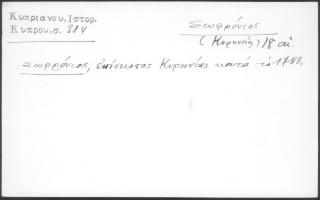 Κυπριανου. Ιστορ.
Κυπρου. σ. 314
Σωφρόνιος
(Κυρηνείας) 18 αι.
Σωφρόνιος, επίσκοπος Κυρηνείας κατά το 1783.